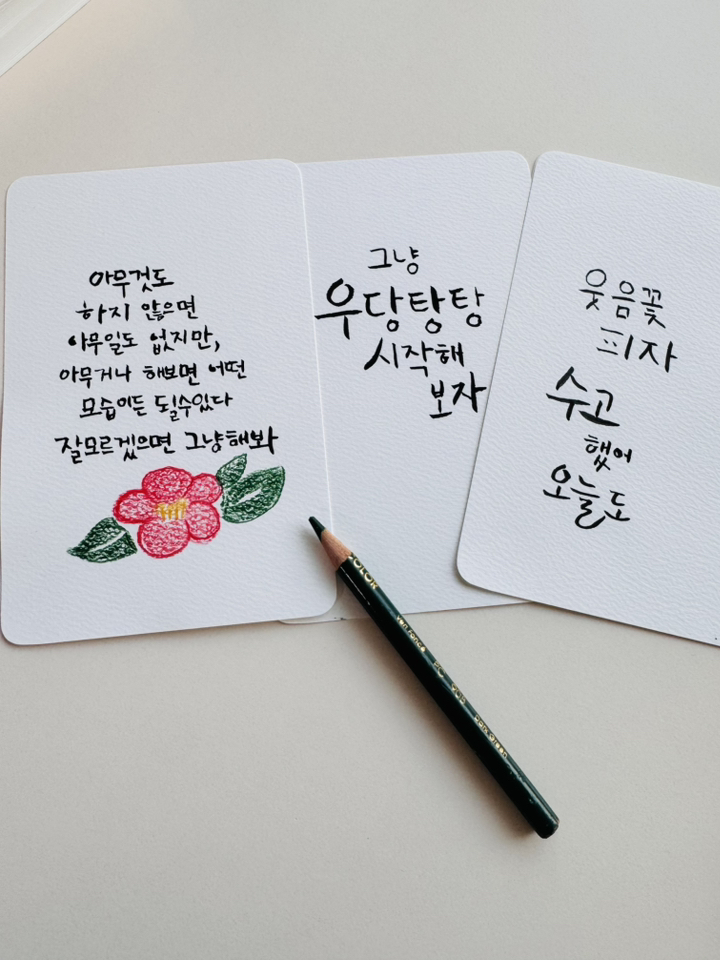 아무것도
하지 않으면
아무일도 없지만,
아무거나 해보면 어떤
모습이든 될수있다
잘모르겠으면 그냥해봐
그냥
우당탕탕
시작해
보자
웃음꽃
피자
수고
했어
오늘도
COLOR